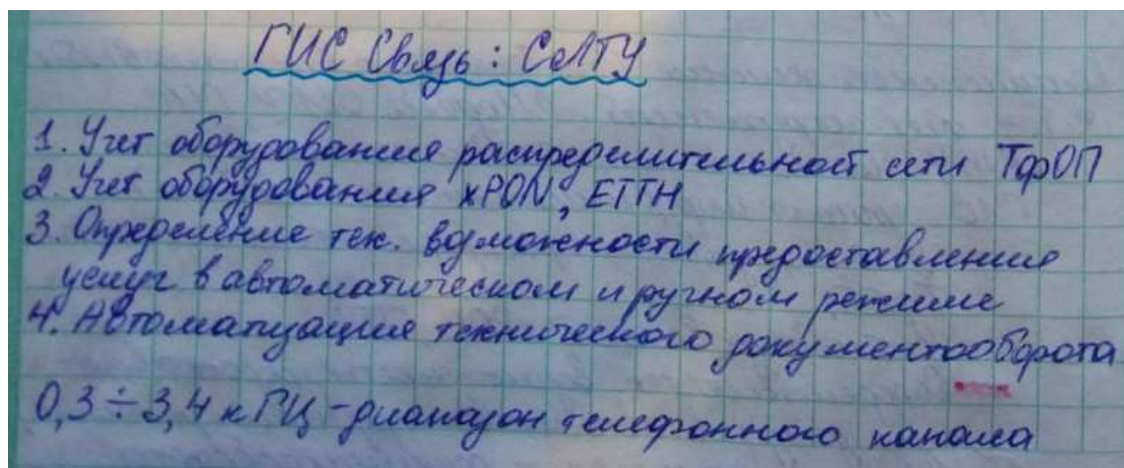 ГИС Связь: СеЛТУ
1. Учет оборудования распределительной сети ТфОП
2. Учет оборудования xPON, ETTH
3. Определение тех. возможности предоставления
услуг в автоматическом и ручном режиме
4. Автоматизация технического документооборота
0,3÷3,4 кГц - диапазон телефонного канала